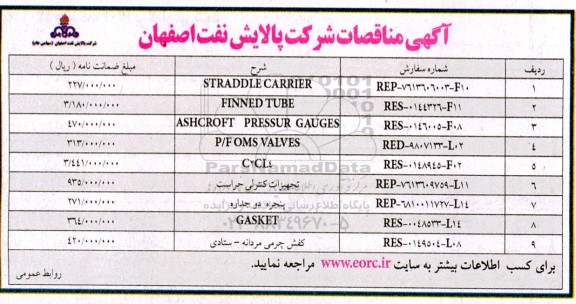 آگهی مناقصات شرکت پالایش نفت اصفهان
شرکت پالایش نفت اصفهان (سهامی عام)
ردیف شماره سفارش شرح مبلغ ضمانت نامه ( ریال )
۱ REP-۷۶۱۳۶۰۶۰۰۳-F۱۰ STRADDLE CARRIER ۲۲۷/۰۰۰/۰۰۰
۲ RES-۰۱۴۴۳۲۶-F۱۱ FINNED TUBE ۳/۱۸۰/۰۰۰/۰۰۰
۳ RES-۰۱۴۶۰۰۵-F۰۸ ASHCROFT PRESSUR GAUGES ۴۷۰/۰۰۰/۰۰۰
۴ RED-۹۸۰۷۱۳۳-L۰۲ P/F OMS VALVES ۳۱۳/۰۰۰/۰۰۰
۵ RES-۰۱۴۸۹۴۵-F۰۲ C۲CL۴ ۳/۴۴۱/۰۰۰/۰۰۰
۶ REP-۷۶۱۳۶۰۹۷۵۹-L۱۱ تجهیزات کنترلی حراست ۹۳۵/۰۰۰/۰۰۰
۷ REP-۶۸۱۰۰۱۱۷۲۷-L۱۴ پنجره دو جداره ۲۷۱/۰۰۰/۰۰۰
۸ RES-۰۰۴۸۵۳۳-L۱۴ GASKET ۳۶۴/۰۰۰/۰۰۰
۹ RES-۰۱۴۹۵۰۴-L۰۸ کفش چرمی مردانه - ستادی ۴۲۰/۰۰۰/۰۰۰
برای کسب اطلاعات بیشتر به سایت www.eorc.ir مراجعه نمایید.
روابط عمومی
ParsNamadData
۰۲۱-۸۸۳۴۹۶۷۰-۵